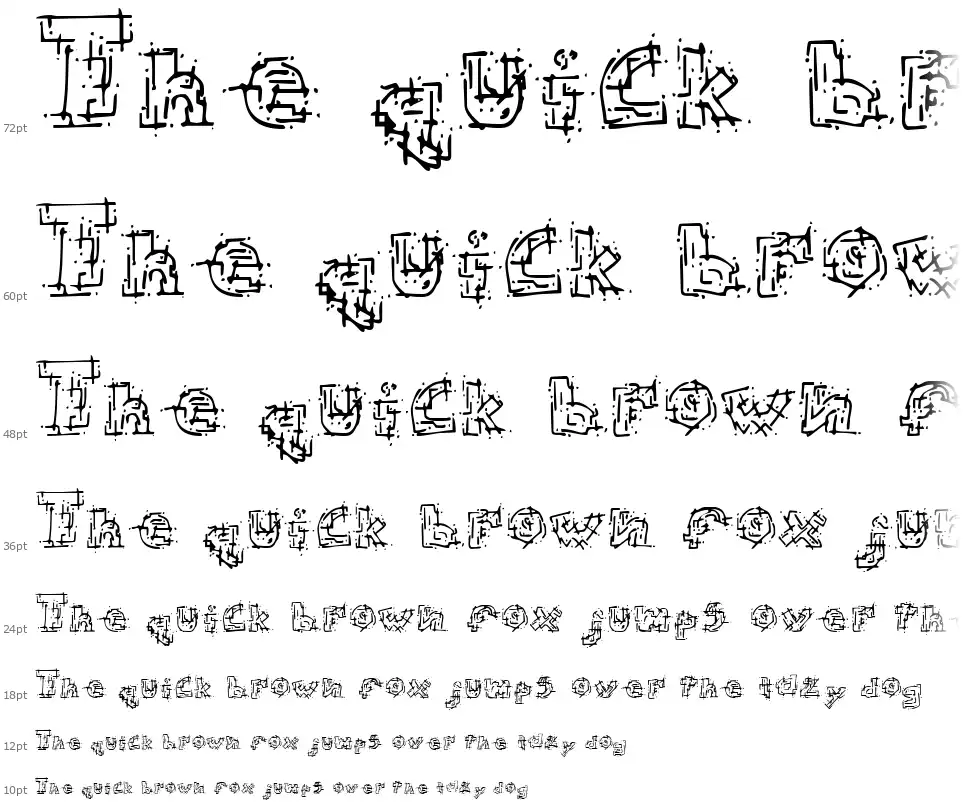 72pt The quick br
60pt The quick brow
48pt The quick brown f
36pt The quick brown fox jum
24pt The quick brown fox jumps over th
18pt The quick brown fox jumps over the lazy dog
12pt The quick brown fox jumps over the lazy dog
10pt The quick brown fox jumps over the lazy dog